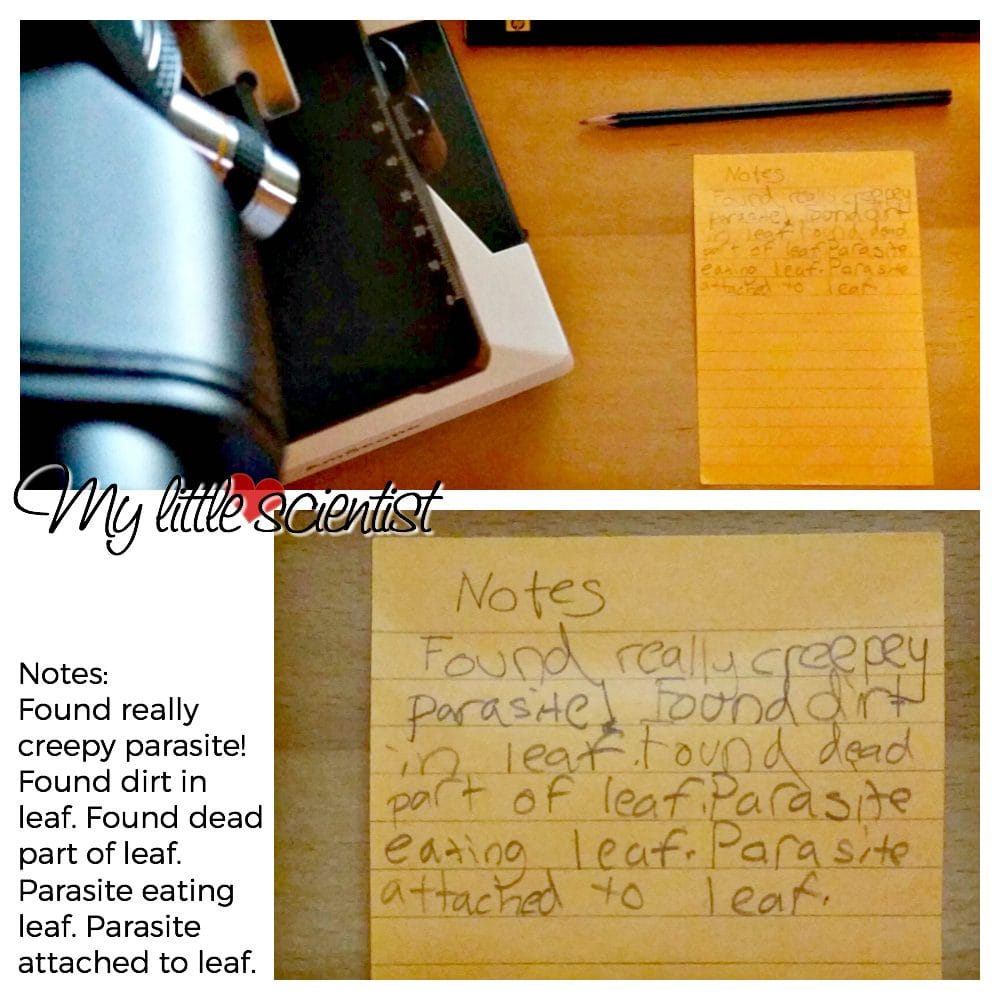 hp
Notes
Found really creepey
parasite! Found dirt
in leaf. Found dead
part of leaf. Parasite
eating leaf. Parasite
attached to leaf.
AmScope
My little scientist
Notes
Found really creepey
parasite! Found dirt
in leaf. Found dead
part of leaf. Parasite
eating leaf. Parasite
attached to leaf.
Notes:
Found really
creepy parasite!
Found dirt in
leaf. Found dead
part of leaf.
Parasite eating
leaf. Parasite
attached to leaf.